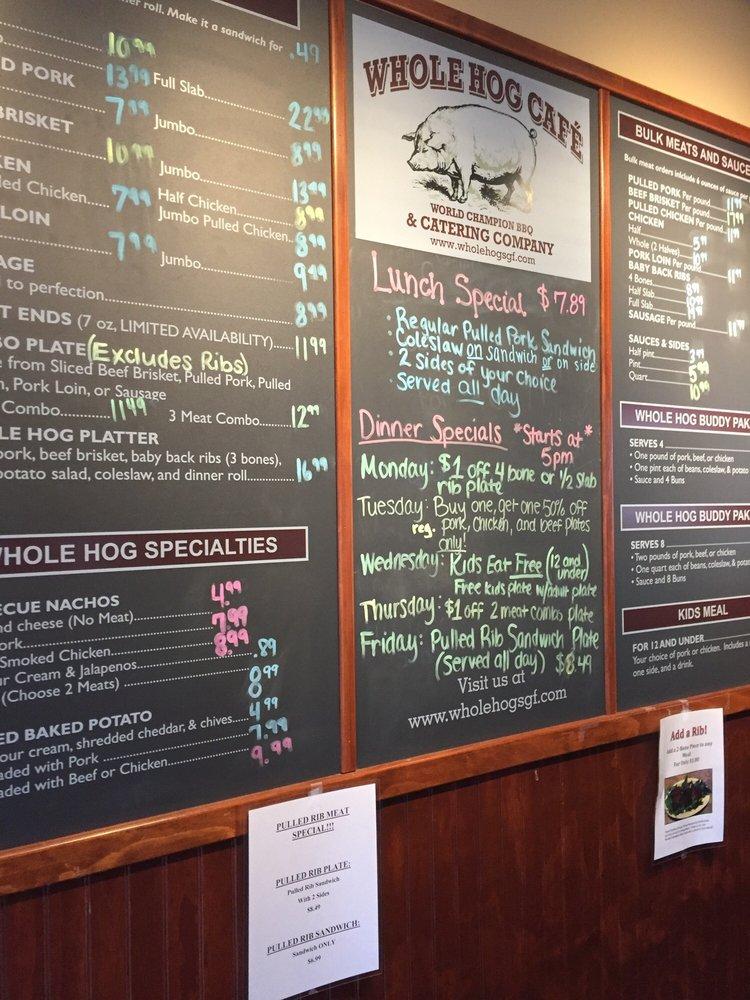 ner roll. Make it a sandwich for .49
10.99
D PORK 13.99 Full Slab 22.99
7.99 Jumbo 8.99
BRISKET
10.99 Jumbo 13.49
KEN Half Chicken 8.99
led Chicken 7.99 Jumbo Pulled Chicken 8.99
LOIN
7.99 Jumbo 9.49
AGE
to perfection 8.99
T ENDS (7 oz, LIMITED AVAILABILITY) 11.99
BO PLATE (Excludes Ribs)
e from Sliced Beef Brisket, Pulled Pork, Pulled
n, Pork Loin, or Sausage
Combo 11.49 3 Meat Combo 12.99
LE HOG PLATTER
pork, beef brisket, baby back ribs (3 bones),
potato salad, coleslaw, and dinner roll 16.99
WHOLE HOG SPECIALTIES
ECUE NACHOS
nd cheese (No Meat) 4.99
ork 7.99
Smoked Chicken 8.99
ur Cream & Jalapenos .89
(Choose 2 Meats) 8.99
ED BAKED POTATO
our cream, shredded cheddar, & chives 4.99
aded with Pork 7.99
aded with Beef or Chicken 9.99
WHOLE HOG CAFÉ
WORLD CHAMPION BBQ
& CATERING COMPANY
www.wholehogsgf.com
Lunch Special $7.89
· Regular Pulled Pork Sandwich
· Coleslaw on sandwich or on side
· 2 sides of your choice
· Served all day
Dinner Specials *Starts at*
5pm
Monday: $1 off 4 bone or 1/2 slab
rib plate
Tuesday: Buy one, get one 50% off
reg. pork, chicken, and beef plates
only!
Wednesday: Kids Eat Free (12 and
under)
Free kids plate w/adult plate
Thursday: $1 off 2 meat combo plate
Friday: Pulled Rib Sandwich Plate
(Served all day) $8.49
Visit us at
www.wholehogsgf.com
BULK MEATS AND SAUCE
Bulk meat orders include 6 ounces of sauce per
PULLED PORK Per pound
BEEF BRISKET Per pound
PULLED CHICKEN Per pound
CHICKEN
Half
Whole (2 Halves)
PORK LOIN Per pound
BABY BACK RIBS
4 Bones
Half Slab
Full Slab
SAUSAGE Per pound
SAUCES & SIDES
Half pint 3.99
Pint 5.99
Quart 10.99
WHOLE HOG BUDDY PAK
SERVES 4
• One pound of pork, beef, or chicken
• One pint each of beans, coleslaw, & potato
• Sauce and 4 Buns
WHOLE HOG BUDDY PAK
SERVES 8
• Two pounds of pork, beef, or chicken
• One quart each of beans, coleslaw, & potato
• Sauce and 8 Buns
KIDS MEAL
FOR 12 AND UNDER
Your choice of pork or chicken. Includes a
one side, and a drink.
PULLED RIB MEAT
SPECIAL!!!
PULLED RIB PLATE:
Pulled Rib Sandwich
With 2 Sides
$8.49
PULLED RIB SANDWICH:
Sandwich ONLY
$6.99
Add a Rib!
Add a 2-Bone Piece to any
Meal
For Only